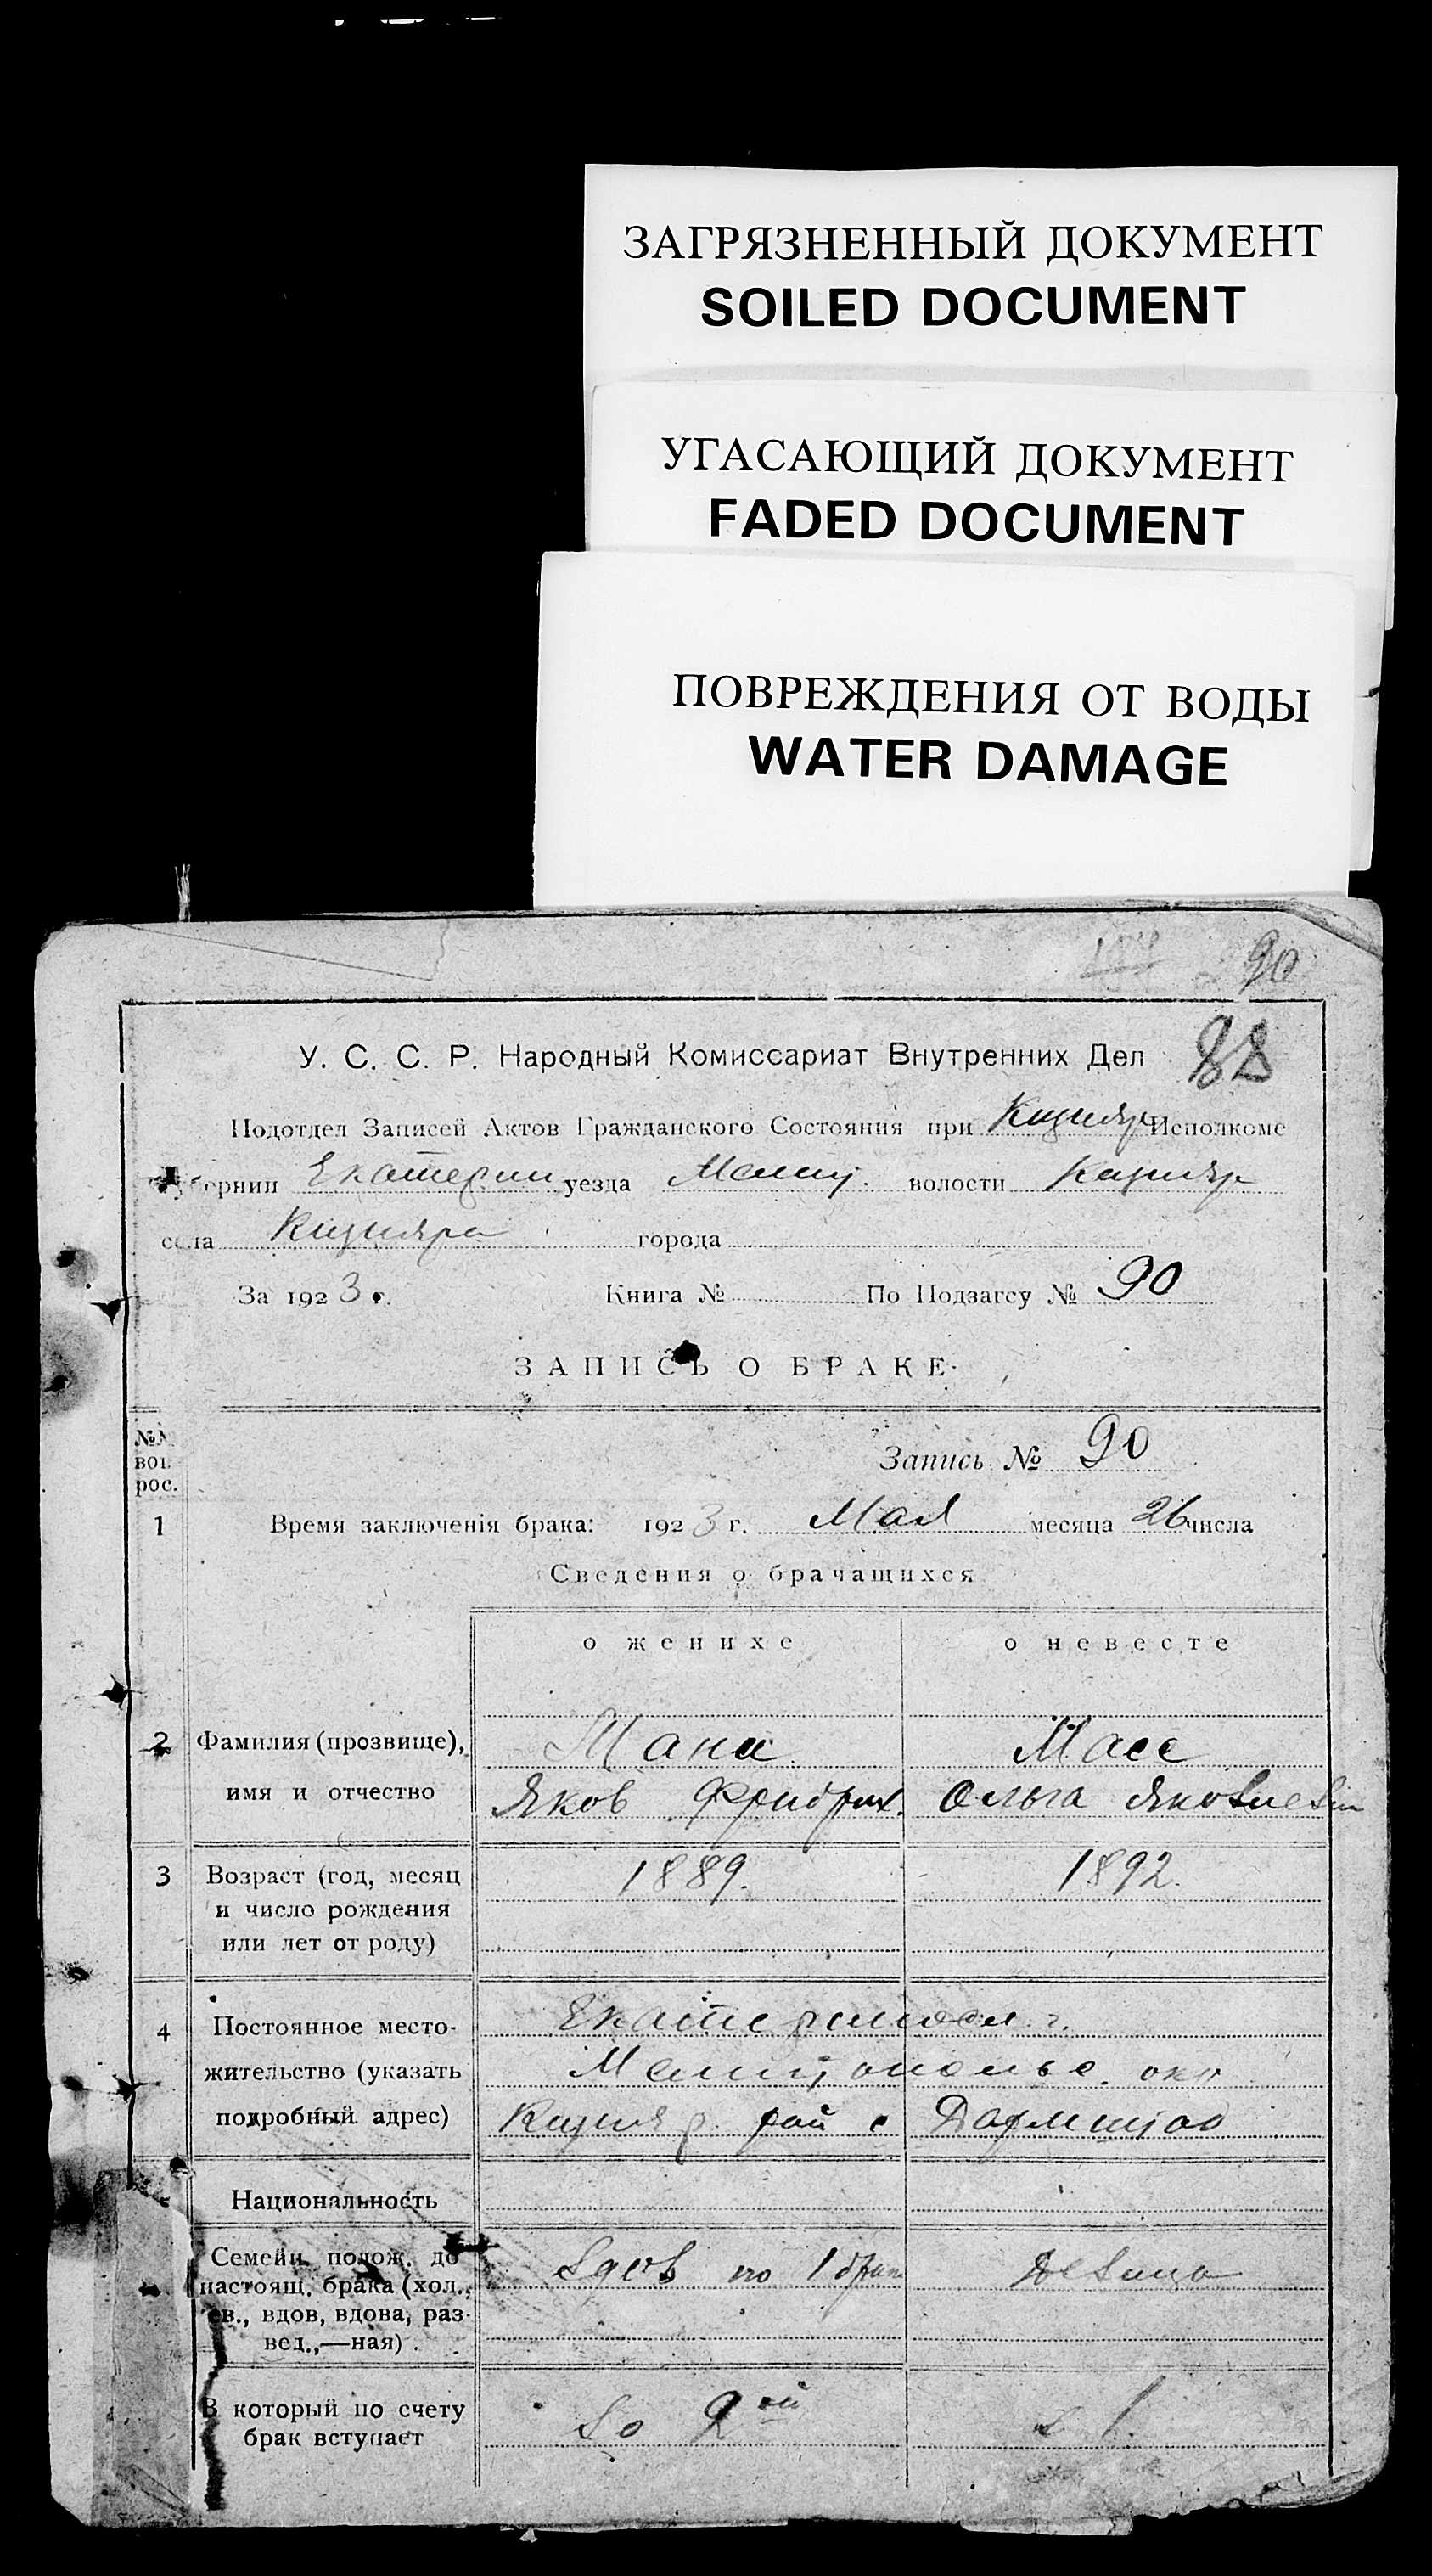 ЗАГРЯЗНЕННЫЙ ДОКУМЕНТ
SOILED DOCUMENT
УГАСАЮЩИЙ ДОКУМЕНТ
FADED DOCUMENT
ПОВРЕЖДЕНИЯ ОТ ВОДЫ
WATER DAMAGE
90
88
У. С. С. Р. Народный Комиссариат Внутренних Дел
Подотдел Записей Актов Гражданского Состояния при Кизияр Исполкоме
губернии Екатерин уезда Мелит. волости Кизияр
села Кизияра города
За 1923 г. Книга № По Подзагсу № 90
ЗАПИСЬ О БРАКЕ
№№
воп
рос.
Запись № 90
1 Время заключенія брака: 1923 г. Мая месяца 26 числа
Сведения о брачащихся
о женихе о невесте
2 Фамилия (прозвище), Манн Масс
имя и отчество Яков Фридрих. Ольга Яковлевн
3 Возраст (год, месяц 1889. 1892.
и число рождения
или лет от роду)
4 Постоянное место- г.
жительство (указать Мелитопольс. окр
подробный адрес) Кизияр. рай с Дармштад
Национальность
Семейн. полож. до вдов по 1 брак девица
настоящ. брака (хол.,
св., вдов, вдова, раз-
вед.,—ная)
В который по счету во 2ой в 1.
брак вступает